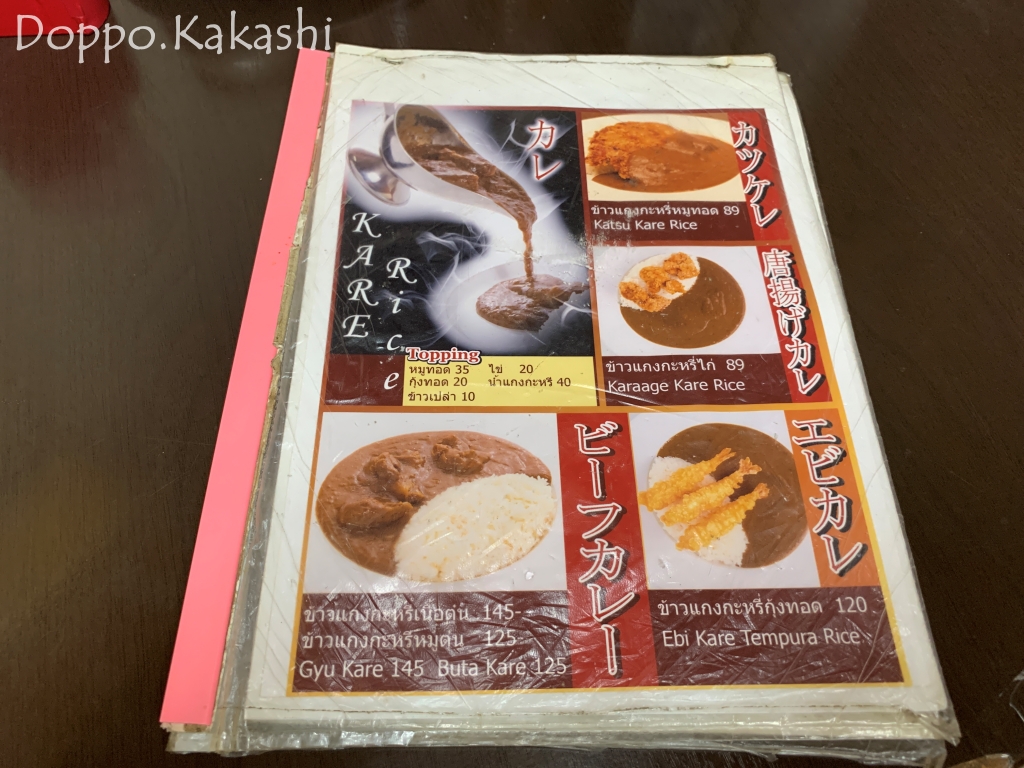 Doppo.Kakashi
カレ
KARE
Rice
Topping
หมูทอด 35 ไข่ 20
กุ้งทอด 20 น้ำแกงกะหรี่ 40
ข้าวเปล่า 10
カツケレ
ข้าวแกงกะหรี่หมูทอด 89
Katsu Kare Rice
唐揚げカレ
ข้าวแกงกะหรี่ไก่ 89
Karaage Kare Rice
ビーフカレー
ข้าวแกงกะหรี่เนื้อตุ๋น 145-
ข้าวแกงกะหรี่หมูตุ๋น 125-
Gyu Kare 145 Buta Kare 125
エビカレ
ข้าวแกงกะหรี่กุ้งทอด 120
Ebi Kare Tempura Rice